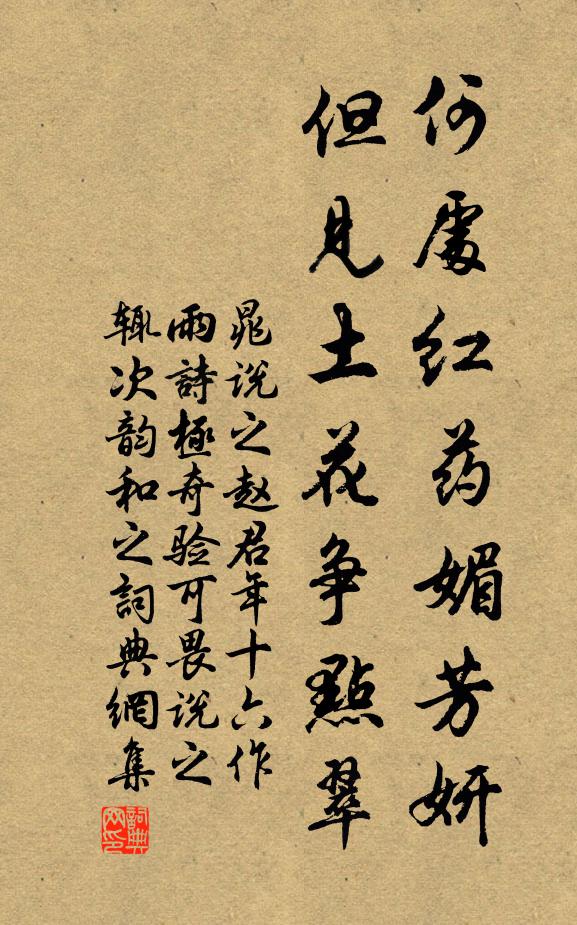 何處红药媚芳妍
但見土花争點翠
晁说之赵君年十六作
雨詩極奇验可畏说之
辄次韵和之詞典網集
詞典网印